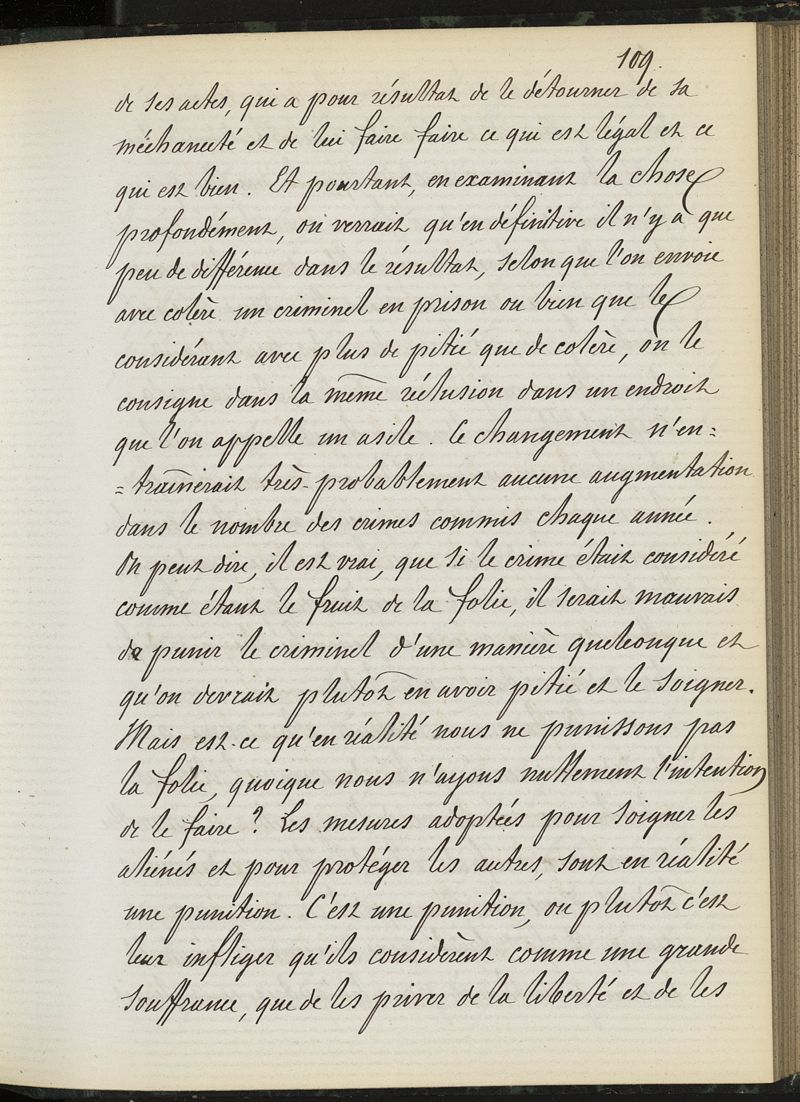 109.
de ses actes, qui a pour résultat de le détourner de sa
méchanceté et de lui faire faire ce qui est légal et ce
qui est bien. Et pourtant, en examinant la chose
profondément, on verrait qu'en définitive il n'y a que
peu de différence dans le résultat, selon que l'on envoie
avec colère un criminel en prison ou bien que le
considérant avec plus de pitié que de colère, on le
consigne dans la même réclusion dans un endroit
que l'on appelle un asile. Ce changement n'en=
=traînerait très-probablement aucune augmentation
dans le nombre des crimes commis chaque année.
On peut dire, il est vrai, que si le crime était considéré
comme étant le fruit de la folie, il serait mauvais
de punir le criminel d'une manière quelconque et
qu'on devrait plutôt en avoir pitié et le soigner.
Mais est-ce qu'en réalité nous ne punissons pas
la folie, quoique nous n'ayons nullement l'intention
de le faire? Les mesures adoptées pour soigner les
aliénés et pour protéger les autres, sont en réalité
une punition. C'est une punition, ou plutôt c'est
leur infliger qu'ils considèrent comme une grande
souffrance, que de les priver de la liberté et de les